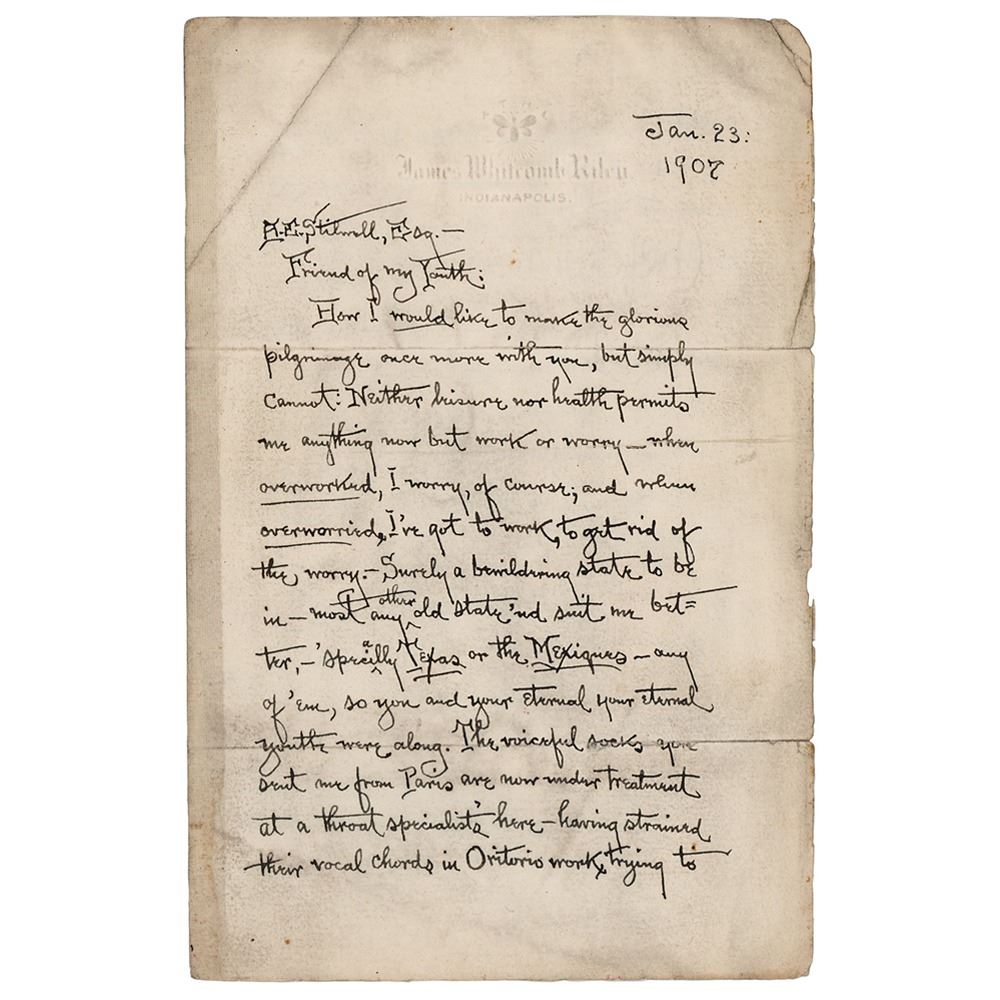 Jan. 23:
1907
James Whitcomb Riley.
INDIANAPOLIS.
A.E. Stilwell, Esq.—
Friend of my Youth:
How I would like to make the glorious
pilgrimage once more with you, but simply
cannot: Neither leisure nor health permits
me anything now but work or worry—when
overworked, I worry, of course; and when
overworried, I've got to work, to get rid of
the worry.—Surely a bewildering state to be
in—most any other old state 'ud suit me bet=
ter,—'specially Texas or the Mexiques—any
of 'em, so you and your eternal your eternal
youth were along. The voiceful socks you
sent me from Paris are now under treatment
at a throat specialist's here—having strained
their vocal chords in Oritorio work, trying to